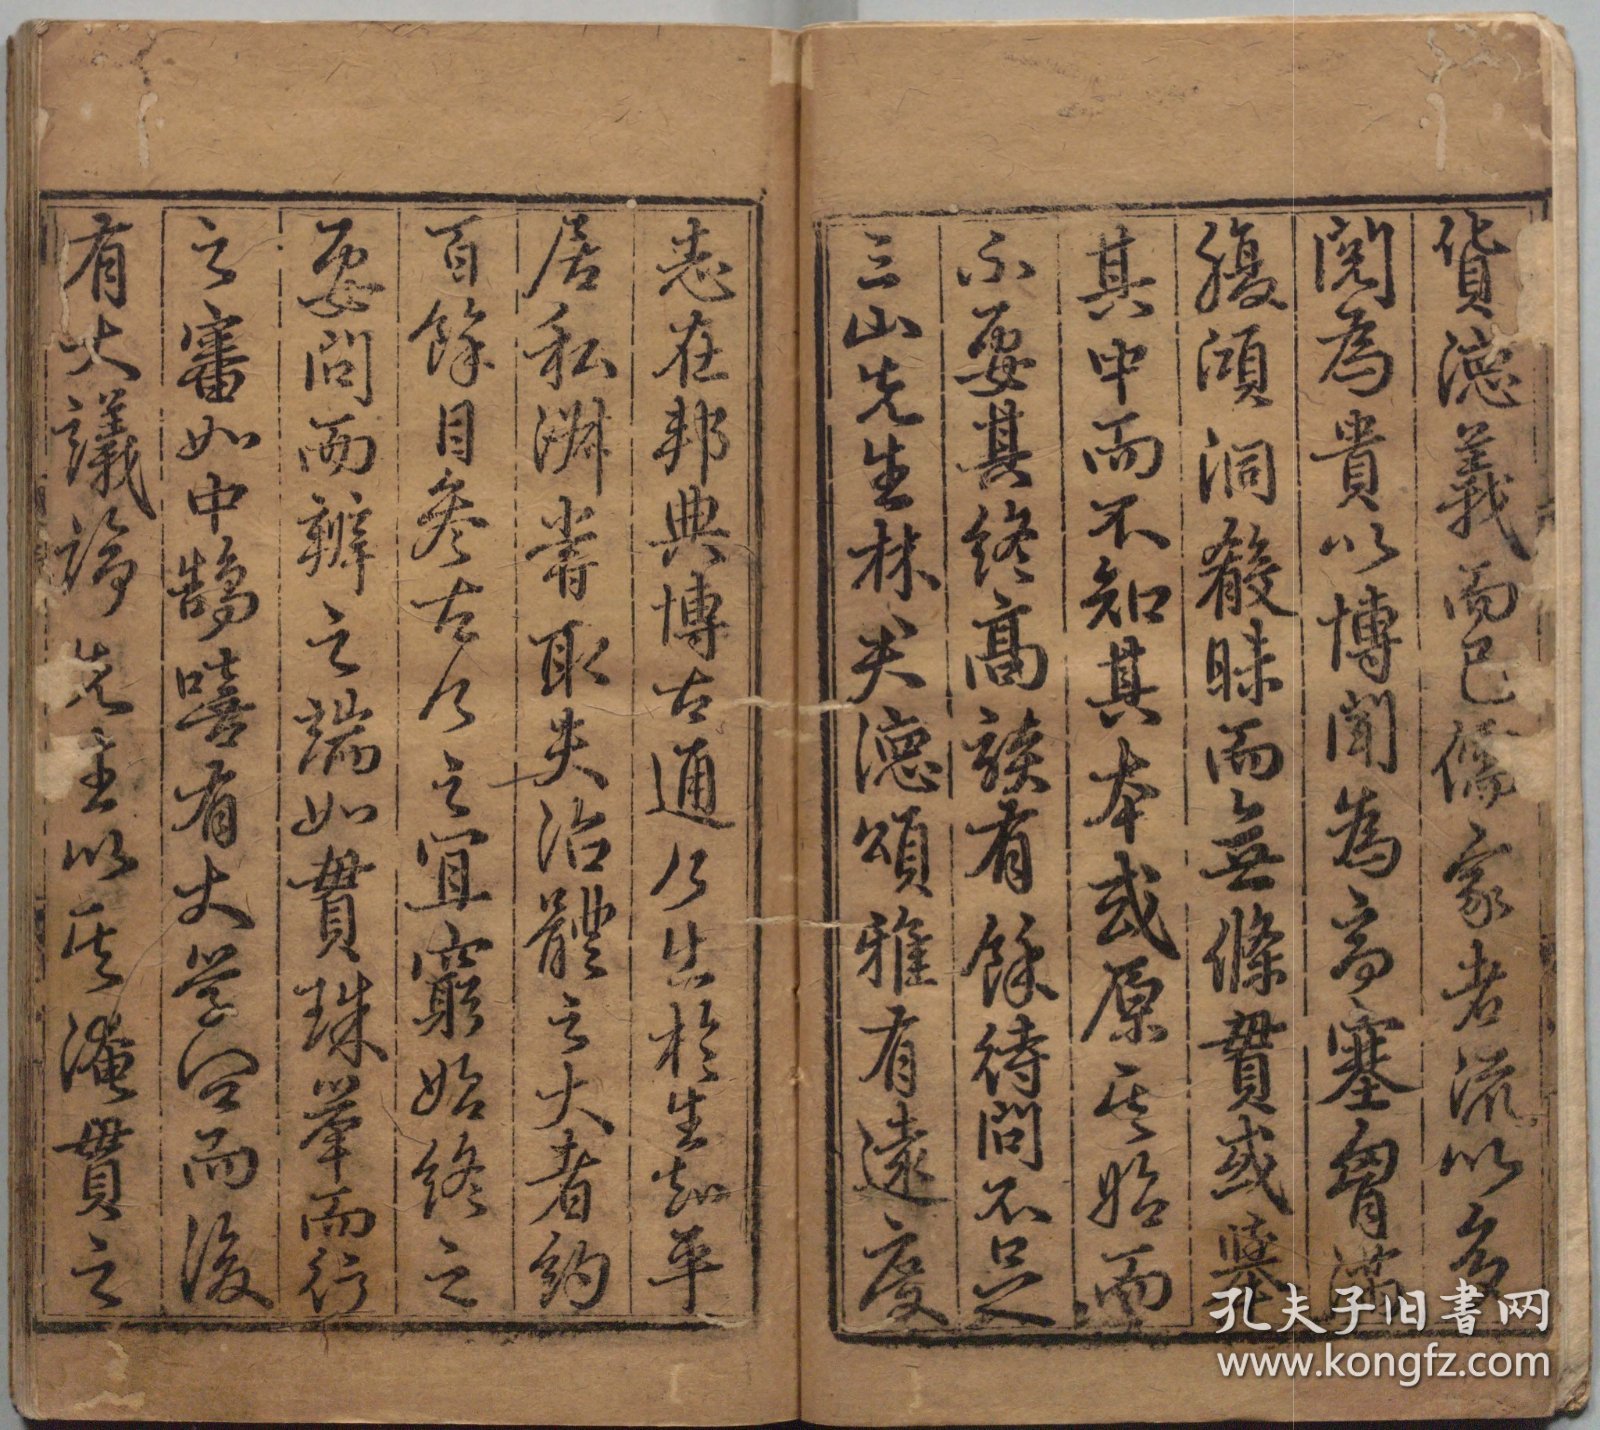 貨德義而已儒家者流以多
閱為貴以博聞為高塞胷滿
腹澒洞殽眛而無條貫或舉
其中而不知其本或原其始而
不要其終高談有餘待問不足
三山先生林夫德頌雅有遠度
志在邦典博古通今出於生知平
居私淑嘗取夫治體之大者約
百餘目參古今之宜窮始終之
要問而辨之端如貫珠舉而行
之審如中鵠嘻有大學問而後
有大議論先生以其淹貫之
孔夫子旧書网
www.kongfz.com